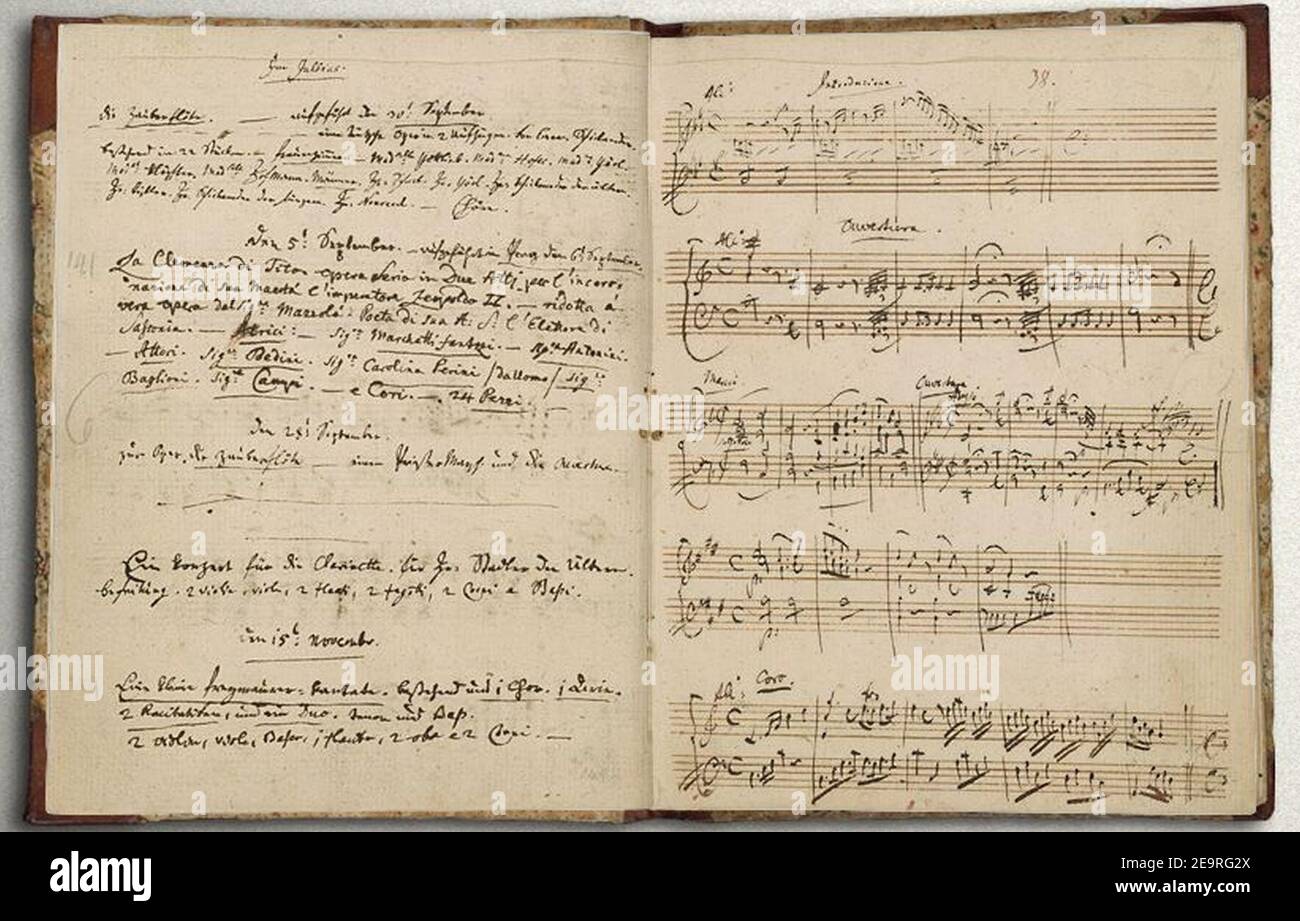 Im Jullius.
die Zauberflöte. — aufgeführt den 30t September.
eine teutsche Oper in 2 Aufzügen. von Eman. Schikaneder.
bestehend in 22 Stücken. — frauenzimmer. — Mad:selle Gottlieb. Mad:me Hofer. Mad:me Görl.
Mad:me Klöpfler. Mad:selle Hofmann. Männer. Hr: Schack. Hr: Görl. Hr: Schikaneder der ältere.
Hr: Kistler. Hr: Schikaneder der Jüngere. Hr: Nouseul. — Chöre.
Den 5t September. — aufgeführt in Prag den 6t September.
141
La Clemenza di Tito. opera Seria in Due Atti. per l'incoro-
nazione di sua Maestà l'imperatore Leopoldo II. — ridotta á
vera opera dal Sigre Mazzolá. Poeta di sua A: S: l'Elettore di
Sassonia. — Attrici: — Sigra Marchetti fantozi. — Sigra Antonini.
— Attori. Sigre Bedini. Sigra Carolina Perini /da Uomo/ Sigre
Baglioni. Sigre Campi. — e Cori. — 24 Pezzi.
Den 28t September.
zur Oper. die Zauberflöte — einen Priestermarsch und die Ouverture.
Ein Konzert für die Clarinette. für Hr: Stadler den Ältern.
begleitung. 2 violini, viole, 2 flauti, 2 fagotti, 2 Corni e Baßi.
Den 15t Novembr.
Eine kleine freymaurer-kantate. bestehend aus 1 Chor. 1 Arie.
2 Recitativen, und ein Duo. tenor und Baß.
2 violini, viola, Baßo, 1 flauto, 2 oboe e 2 Corni. —
Introduzione.
38.
All:
Ouvertura.
All:
Marcia
Ouverture
Adagio
Coro.
All:
alamy
Image ID: 2E9RG2X
www.alamy.com